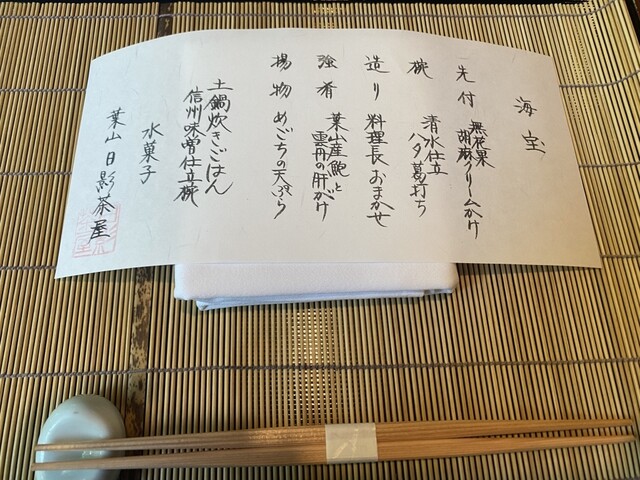 海宝
先付 無花果
胡麻クリームかけ
椀 清水仕立
ハタ葛打ち
造り 料理長おまかせ
強肴 葉山産鮑と
雲丹の肝がけ
揚物 めごちの天ぷら
土鍋炊きごはん
信州味噌仕立椀
水菓子
葉山日影茶屋